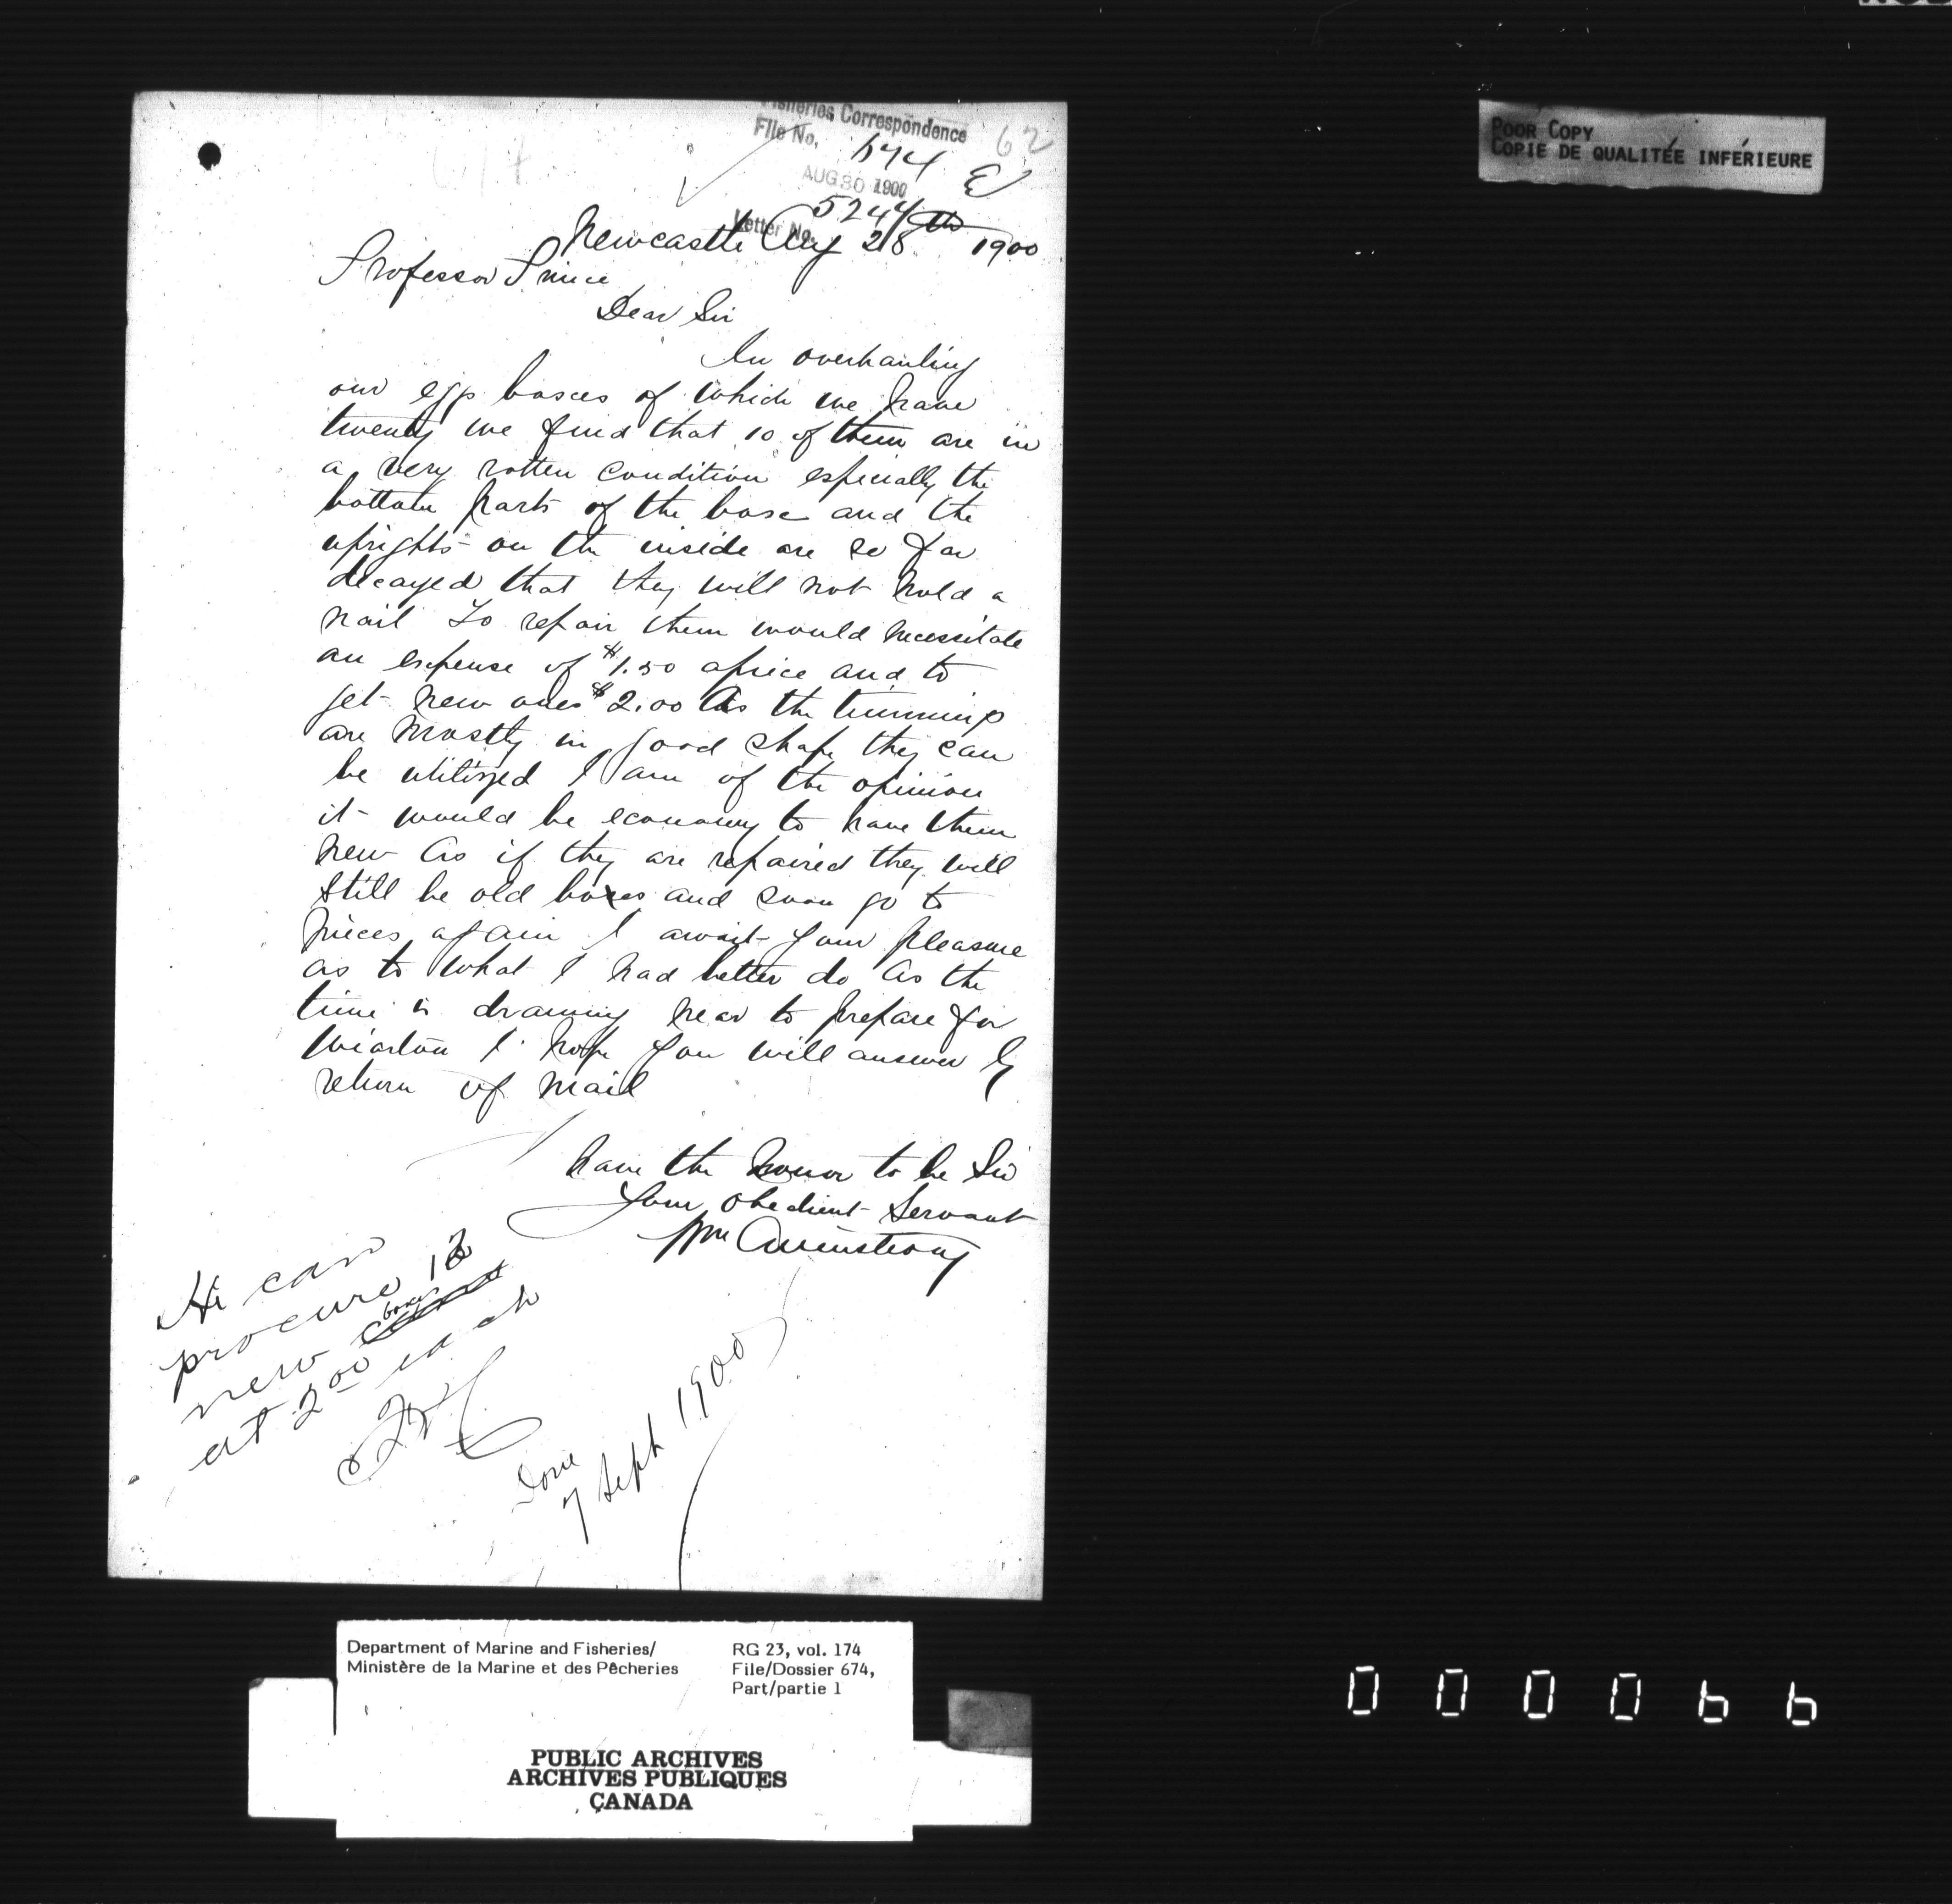 POOR COPY
COPIE DE QUALITÉE INFÉRIEURE
Fisheries Correspondence
62
File No. 674 E
AUG 30 1900
Letter No. 5244
Newcastle Aug 28th 1900
Professor Prince
Dear Sir
In overhauling
our egg boxes of which we have
twenty we find that 10 of them are in
a very rotten condition especially the
bottom parts of the box and the
uprights on the inside are so far
decayed that they will not hold a
nail To repair them would necessitate
an expense of $1.50 apiece and to
get new ones $2.00 As the trimmings
are mostly in good shape they can
be utilized I am of the opinion
it would be economy to have them
new As if they are repaired they will
still be old boxes and soon go to
pieces again I await your pleasure
as to what I had better do As the
time is drawing near to prepare for
Wiarton I hope you will answer by
return of mail
have the honor to be Sir
Your obedient Servant
Wm Armstrong
He can
procure 12
new boxes
at 2.00 each
Done
7 Sept 1900
Department of Marine and Fisheries/
Ministère de la Marine et des Pêcheries
RG 23, vol. 174
File/Dossier 674,
Part/partie 1
PUBLIC ARCHIVES
ARCHIVES PUBLIQUES
CANADA
000066